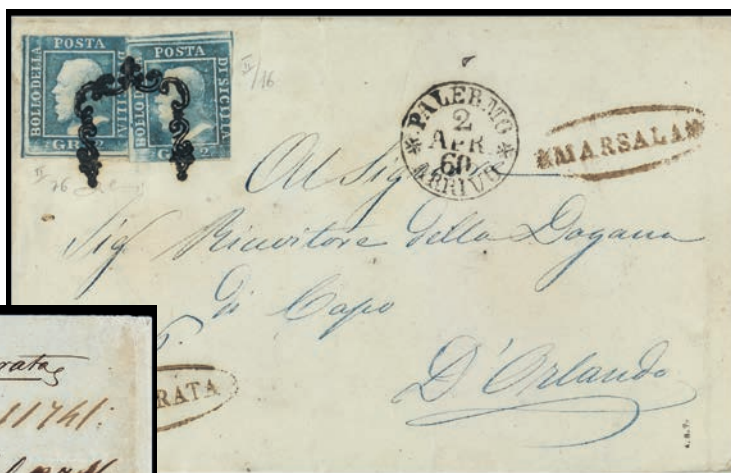 POSTA
BOLLO DELLA
GR. 2
POSTA
BOLLO DELLA
DI SICILIA
GR. 2
II/16
PALERMO
2
APR
60
ARRIVO
MARSALA
Al Sig
Sig Ricevitore della Dogana
di Capo
D'Orlando
RATA
rata
11741: